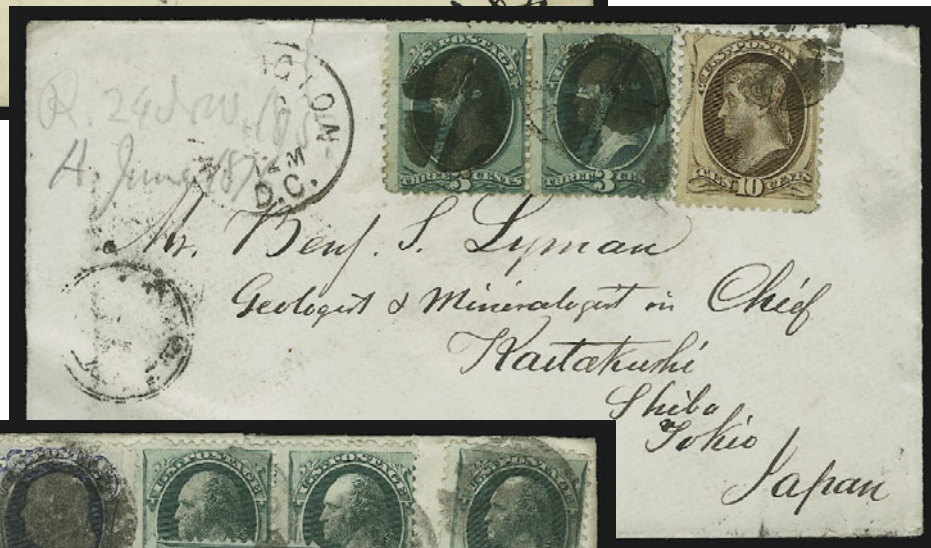 U.S. POSTAGE
THREE 3 CENTS
U.S. POSTAGE
THREE 3 CENTS
U.S. POSTAGE
TEN 10 CENTS
D.C.
Mr. Benj. S. Lyman
Geologist & Mineralogist in Chief
Kaitakushi
Shiba
Tokio
Japan
U.S. POSTAGE
U.S. POSTAGE
U.S. POSTAGE